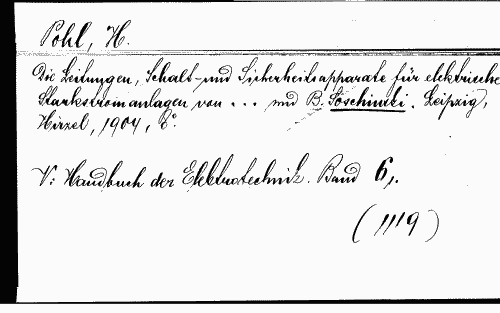 Pohl, H.
Die Leitungen, Schalt- und Sicherheitsapparate für elektrische
Starkstromanlagen von ... und B. Soschinski. Leipzig,
Hirzel, 1904, 8°.
V: Handbuch der Elektrotechnik. Band 6,.
(1119)